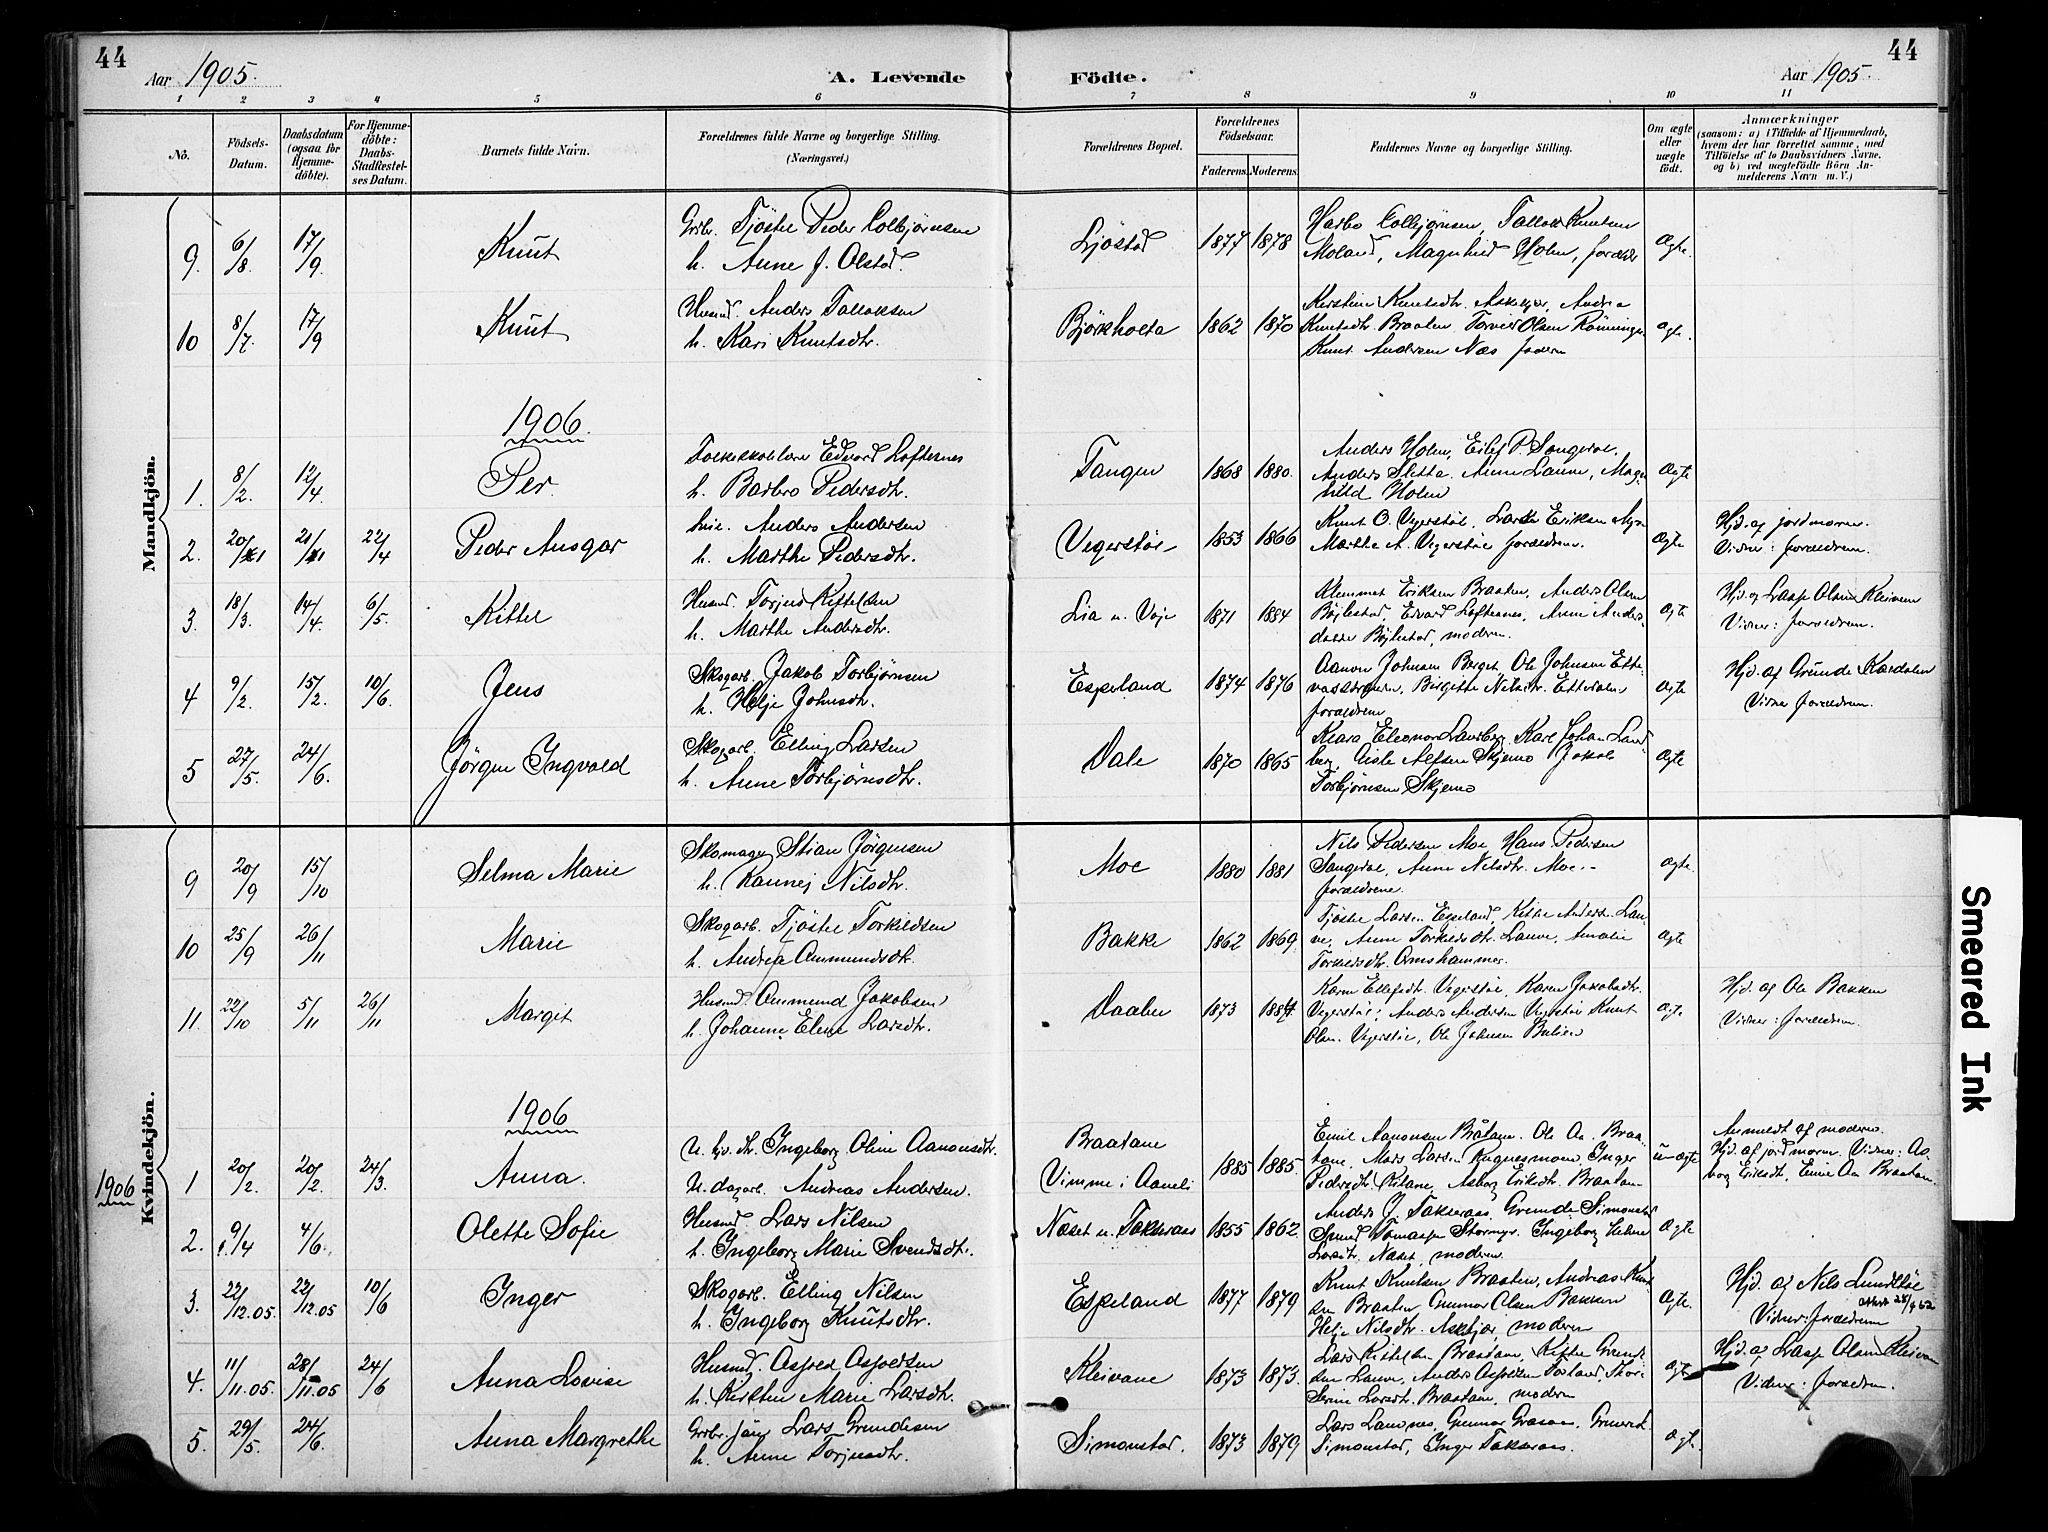 44
Aar 1905.
A. Levende
Födte.
Aar 1905.
44
1 2 3 4 5 6 7 8 9 10 11
No.
Födsels-Datum.
Daabsdatum (ogsaa for Hjemmedöbte).
For Hjemmedöbte: Daabs-Stadfæstelses Datum.
Barnets fulde Navn.
Forældrenes fulde Navne og borgerlige Stilling. (Næringsvei.)
Forældrenes Bopæl.
Forældrenes Födselsaar.
Faderens. Moderens.
Faddernes Navne og borgerlige Stilling.
Om ægte eller uægte födt.
Anmærkninger (saasom: a) i Tilfælde af Hjemmedaab, hvem der har forrettet samme, med Tilföielse af to Daabsvidners Navne, og b) ved uægtefödte Börn Anmelderens Navn m. V.)
Mandkjön.
9. 6/8. 17/9 Knut
Grbr. Tjöstel Peder Colbjørnsen
h. Anne J. Olstad.
Ljöstad 1877 1878
Harbo Colbjørnsen, Tallak Knutsen
Moland, Magnhild Holm, forældr
Ægte.
10 8/7. 17/9 Knut
Husmd. Anders Tallaksen
h. Kari Knutsdtr.
Björkholta 1862 1870
Kirstine Knutsdtr. Askkjær, Andrea
Knutsdtr. Braaten, Olsen Rönningen
Knut Andersen Næs faderen
ægte.
1906.
1. 8/2. 12/4. Per.
Folkeskolelærer Edvard Loftesnes
h. Barbro Pedersdtr.
Tangen 1868 1880.
Anders Holm, Eilef P. Songedal,
Anders Sletta, Anne Lauve, Mag-
hild Holm
Ægte
2. 20/1 21/1 22/4 Peder Ansgar
Anders Andersen
h. Marthe Pedersdtr.
Vegerstöl 1853 1866
Knut O. Vegerstöl, Eriksen
Marthe A. Vegerstöl forældrene.
Ægte
Hjd. af jordmoren.
Vidner: forældrene.
3. 18/3. 14/4. 6/5. Kittel
Husmd. Torjus Kittelsen
h. Marthe Andersdtr.
Lia u. Veje 1871 1884
Klemmet Eriksen Braaten, Anders Olsen
Böilestad, Edvard Loftesnes, Anne Anders-
datter Böilestad, moderen.
Ægte
Hjd. af Lasse Olsen Kleivene
Vidner: forældrene.
4 9/2. 15/2. 10/6. Jens
Skogarb. Jakob Torbjörnsen
h. Helje Johnsdtr.
Espeland 1874 1876
Aanon Johnsen Berget, Ole Johnsen Ette-
Birgitte Nilsdtr. Ettedalen
forældrene
Ægte
Hjd. af Grunde Kardalen
Vidner forældrene.
5 27/5. 24/6. Jörgen Ingvald
Skogarb. Elling Larsen
h. Anne Torbjørnsdtr.
Dale 1870 1865
Klara Eleonor Landberg, Karl Johan Land-
berg, Alfsen Skjemo Jakob
Torbjørnsen Skjemo
Ægte
1906
Kvindekjön.
9 20/9 15/10 Selma Marie
Skomager Stian Jörgensen
h. Rannei Nilsdtr.
Moe 1880 1881
Nils Pedersen Moe Hans Pedersen
Songedal, Anne Nilsdtr. Moe
forældrene.
Ægte.
10 25/9 26/11 Marie
Skogarb. Tjöstel Torkildsen
h. Andrea Aamundsdtr.
Bakke 1862 1869.
Tjöstel Larsen Espeland, Kittel Andersen Lau-
ve, Anne Torkildsdtr. Lauve, Amalie
Torkildsdtr. Omshammer.
Ægte
11. 22/10 5/11 26/11 Margit
Husmd. Aamund Jakobsen
h. Johanne Elene Larsdtr.
Daalen 1873 1884
Karen Ellefsdtr. Vegerstöl, Karen Jakobsdtr.
Vegerstöl, Anders Andersen Vegerstöl Knut
Olsen Vegerstöl, Ole Johnsen
Ægte
Hjd. af Ole Bakken
Vidner: forældrene.
1906
1 20/2. 20/2. 24/3. Anna.
U. gdr. Ingeborg Oline Aanonsdtr.
U. dagarb. Andreas Andersen.
Braatane
Vimme i Aamli 1885 1885
Emil Aanonsen Bråtane. Ole Aa. Braa-
tane, Mads Larsen Inger
Pedersdtr. Kitane, Asborg Eriksdtr. Braatane
u-ægte
Anmeldt af moderen.
Hjd. af jordmoren. Vidner: As-
borg Eriksdtr, Emil Aa Braatan.
2. 9/4 4/6. Olette Sofie
Husmd. Lars Nilsen
h. Ingeborg Marie Svendsdtr.
Næset u. Takseraas 1855 1862.
Anders J. Takseraas Grunde Simonstad
Ingeborg Helene
Larsdtr. Næset, moderen.
Ægte
3. 22/12.05 22/12.05 10/6 Inger
Skogarb. Elling Nilsen
h. Ingeborg Knutsdtr.
Espeland 1877 1879
Knut Knutsen Braaten, Andreas Knut-
sen Braaten Gunnar Olsen Bakken
Helje Nilsdtr. Askkjær, moderen
Ægte.
Hjd. af Nils Lundstöl
Attest 28/4 62
Vidner: forældrene
4. 11/11.05. 28/11.05 24/6 Anna Lovise
Husmd. Asjoel Asjoelsen
h. Kirsten Marie Larsdtr.
Kleivane 1873 1873.
Lars Kittelsen Braatane, Kittel Grund-
sen Lauve, Anders Asjoelsen
Serine Larsdtr Braatane, moderen
ægte
Hjd. af Lasse Olsen Kleivan
Vidner: forældren.
5. 29/5. 24/6. Anna Margrethe
Grbr. Lars Grundesen
h. Anne Torjusdtr.
Simonstad. 1873 1879
Lars Landnes, Gunnar Graaas, Grunde
Simonstad, Inger Takseraas.
ægte.
Smeared Ink